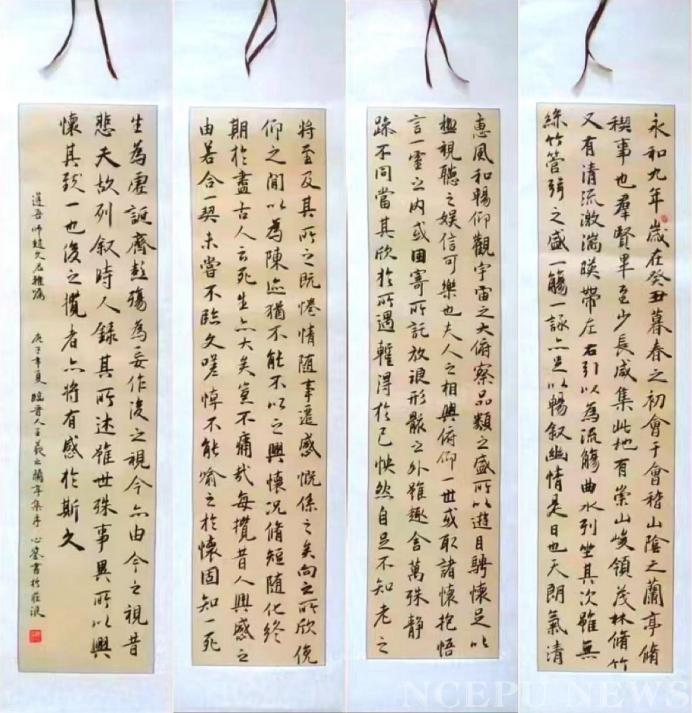 永和九年歲在癸丑暮春之初會于會稽山陰之蘭亭脩
稧事也羣賢畢至少長咸集此地有崇山峻領茂林脩竹
又有清流激湍暎帶左右引以為流觴曲水列坐其次雖無
絲竹管弦之盛一觴一詠亦足以暢叙幽情是日也天朗氣清
惠風和暢仰觀宇宙之大俯察品類之盛所以遊目騁懷足以
極視聽之娛信可樂也夫人之相與俯仰一世或取諸懷抱悟
言一室之內或因寄所託放浪形骸之外雖趣舍萬殊靜
躁不同當其欣於所遇暫得於己怏然自足不知老之
將至及其所之既惓情隨事遷感慨係之矣向之所欣俛
仰之間以為陳迹猶不能不以之興懷況脩短隨化終
期於盡古人云死生亦大矣豈不痛哉每攬昔人興感之
由若合一契未嘗不臨文嗟悼不能喻之於懷固知一死
生為虛誕齊彭殤為妄作後之視今亦由今之視昔
悲夫故列叙時人錄其所述雖世殊事異所以興
懷其致一也後之攬者亦將有感於斯文
庚子年夏 臨晉人王羲之蘭亭集序
NCEPU NEWS